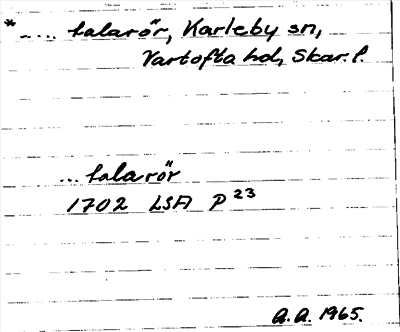 *..... talarör, Karleby sn,
Vartofta hd, Skar. l.
... talarör
1702 LSA P 23
A.A. 1965.